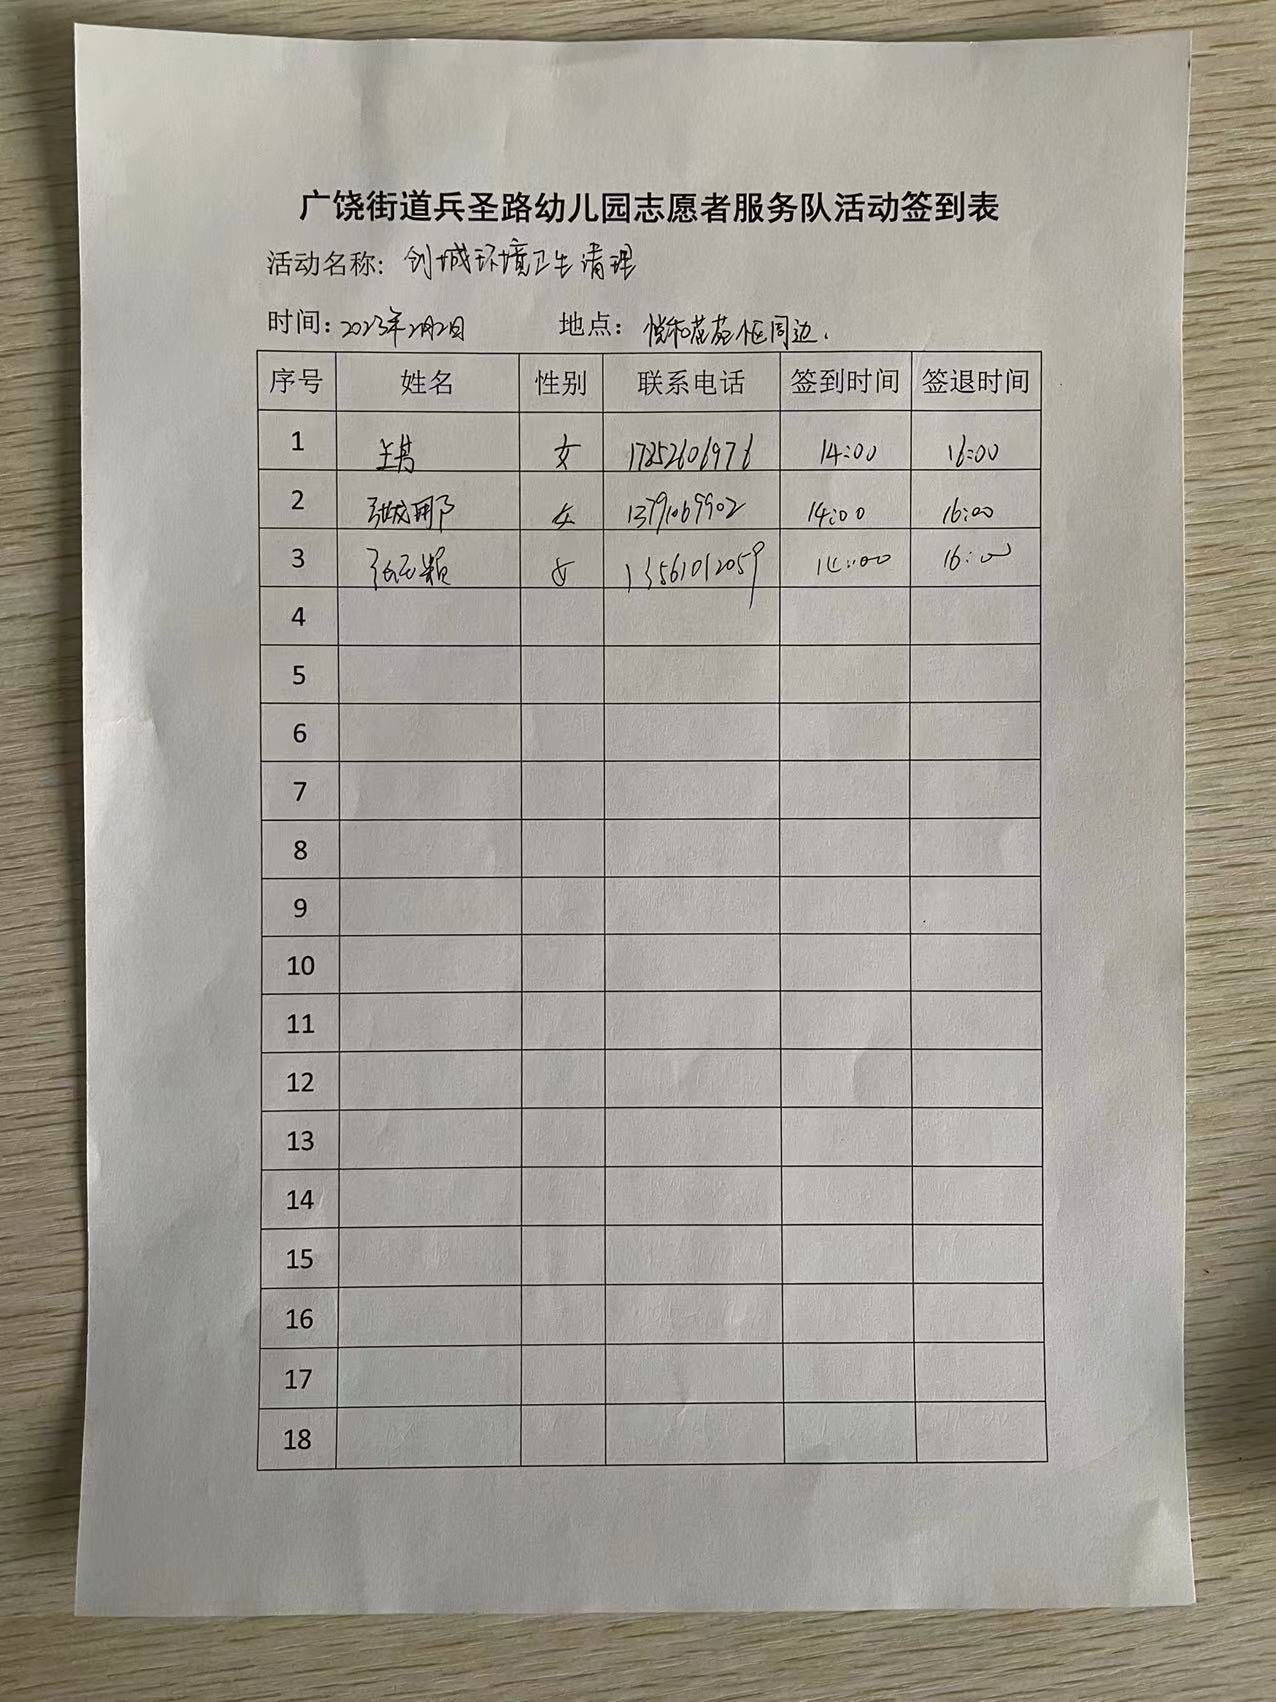 广饶街道兵圣路幼儿园志愿者服务队活动签到表
活动名称: 创城环境卫生清理
时间: 2023年2月2日 地点: 悦和花苑小区周边.
序号 姓名 性别 联系电话 签到时间 签退时间
1 女 17852606976 14:00 16:00
2 张城那 女 13791069902 14:00 16:00
3 女 13561012059 14:00 16:00
4
5
6
7
8
9
10
11
12
13
14
15
16
17
18